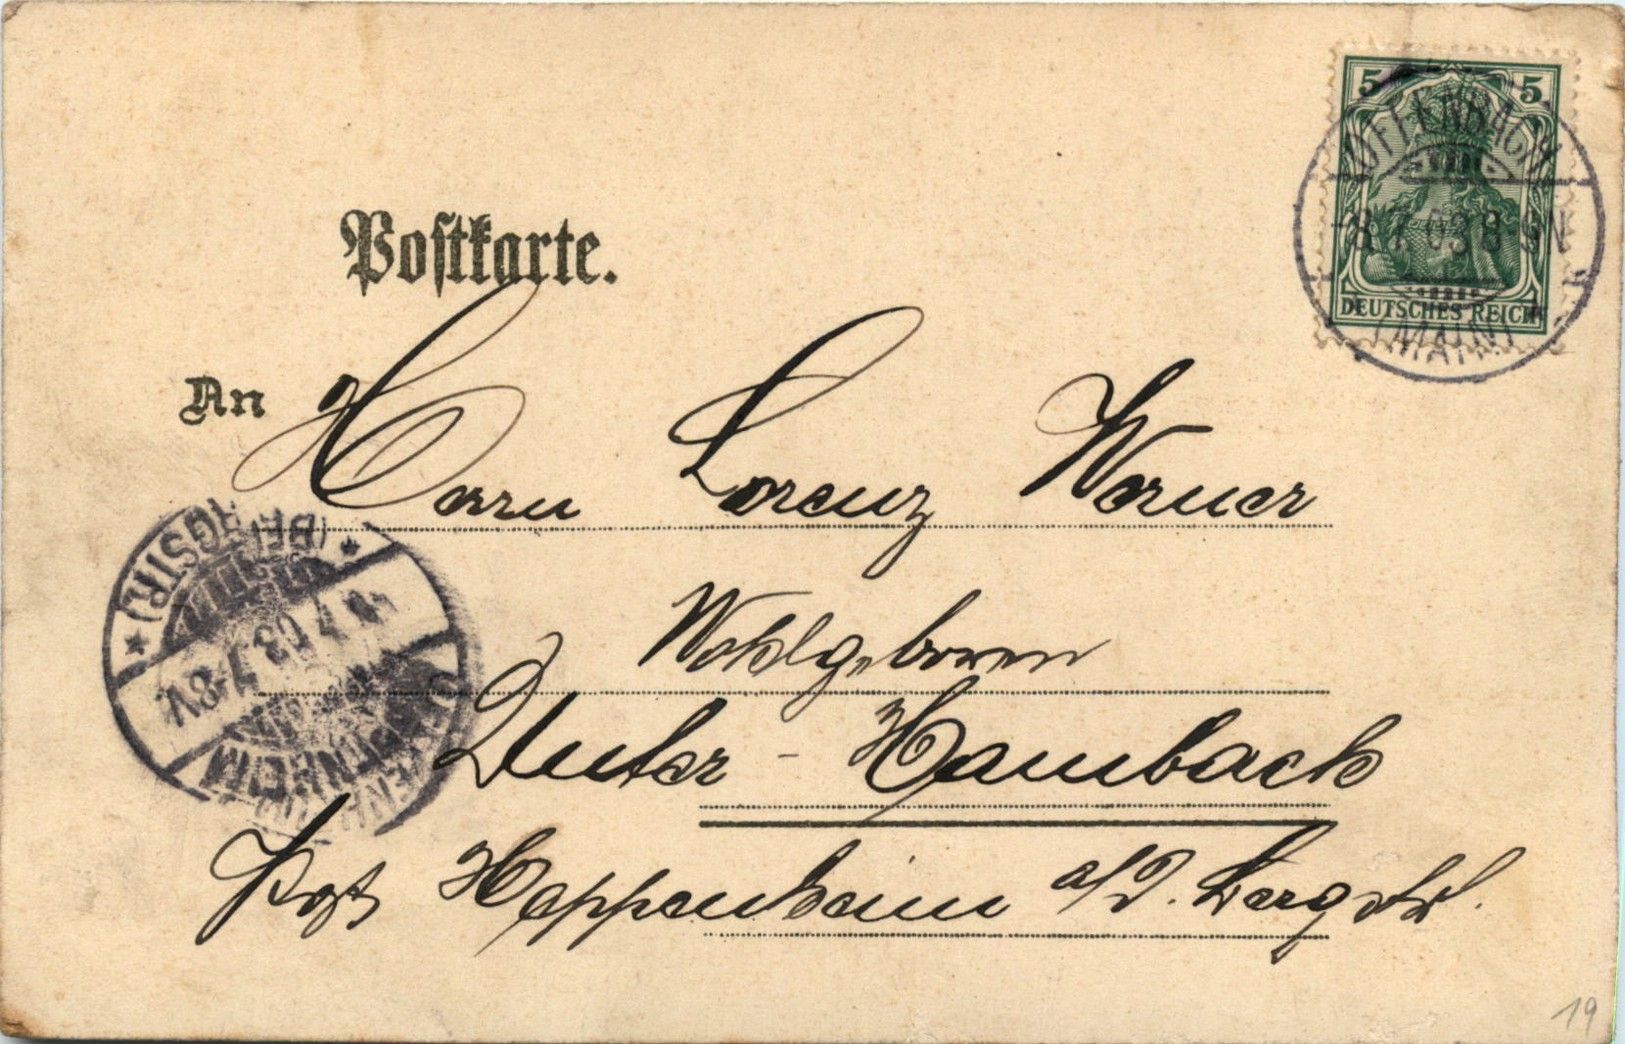 5 5
OFFENBACH
8.7.03.8-9N
DEUTSCHES REICH
(MAIN)
Postkarte.
An Herrn Lorenz Werner
Wohlgeboren
Unter-Hambach
Post Heppenheim a/d. Bergstr.
(BERGSTR.)
7-8V
HEPPENHEIM
19